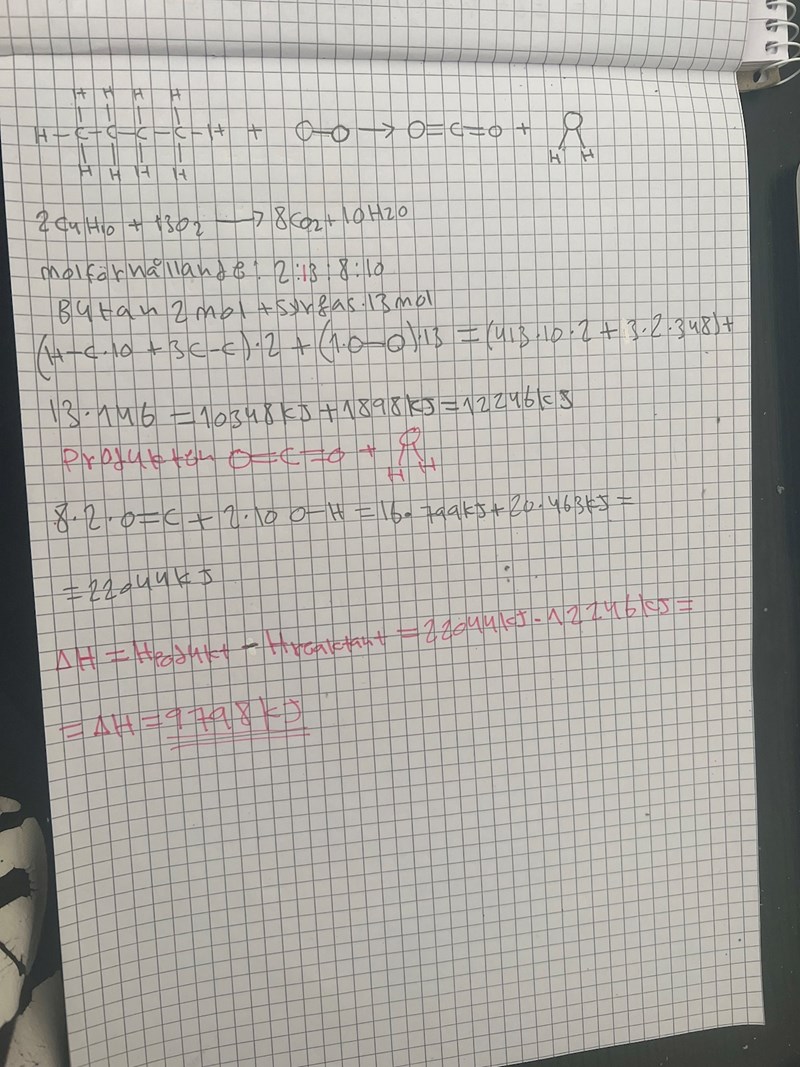 H H H H
H-C-C-C-C-H + O-O → O=C=O + O
H H H H H H
2C4H10 + 13O2 → 8CO2 + 10H2O
molförhållande: 2:13:8:10
Butan 2 mol + syrgas. 13 mol
(H-C·10 + 3C-C)·2 + (1·O-O)·13 = (413·10·2 + 3·2·348) +
13·146 = 10348kJ + 1898kJ = 12246kJ
Produkten O=C=O + O
H H
8·2·O=C + 2·10 O-H = 16·799kJ + 20·463kJ =
= 22044kJ
ΔH = Hprodukt - Hreaktant = 22044kJ - 12246kJ =
= ΔH = 9798kJ